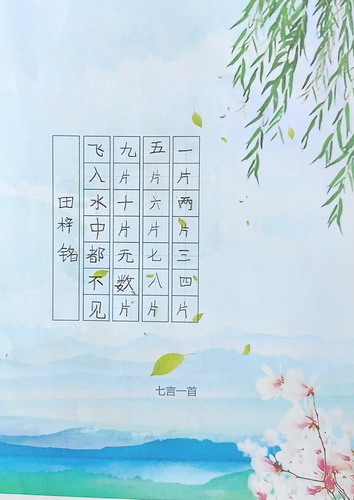 一片两片三四片
五片六片七八片
九片十片无数片
飞入水中都不见
田梓铭
七言一首